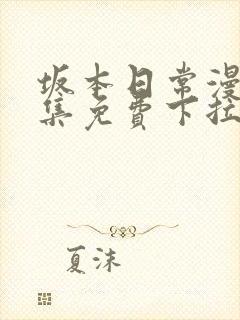 坂本日常漫
集免费下拉
夏沫